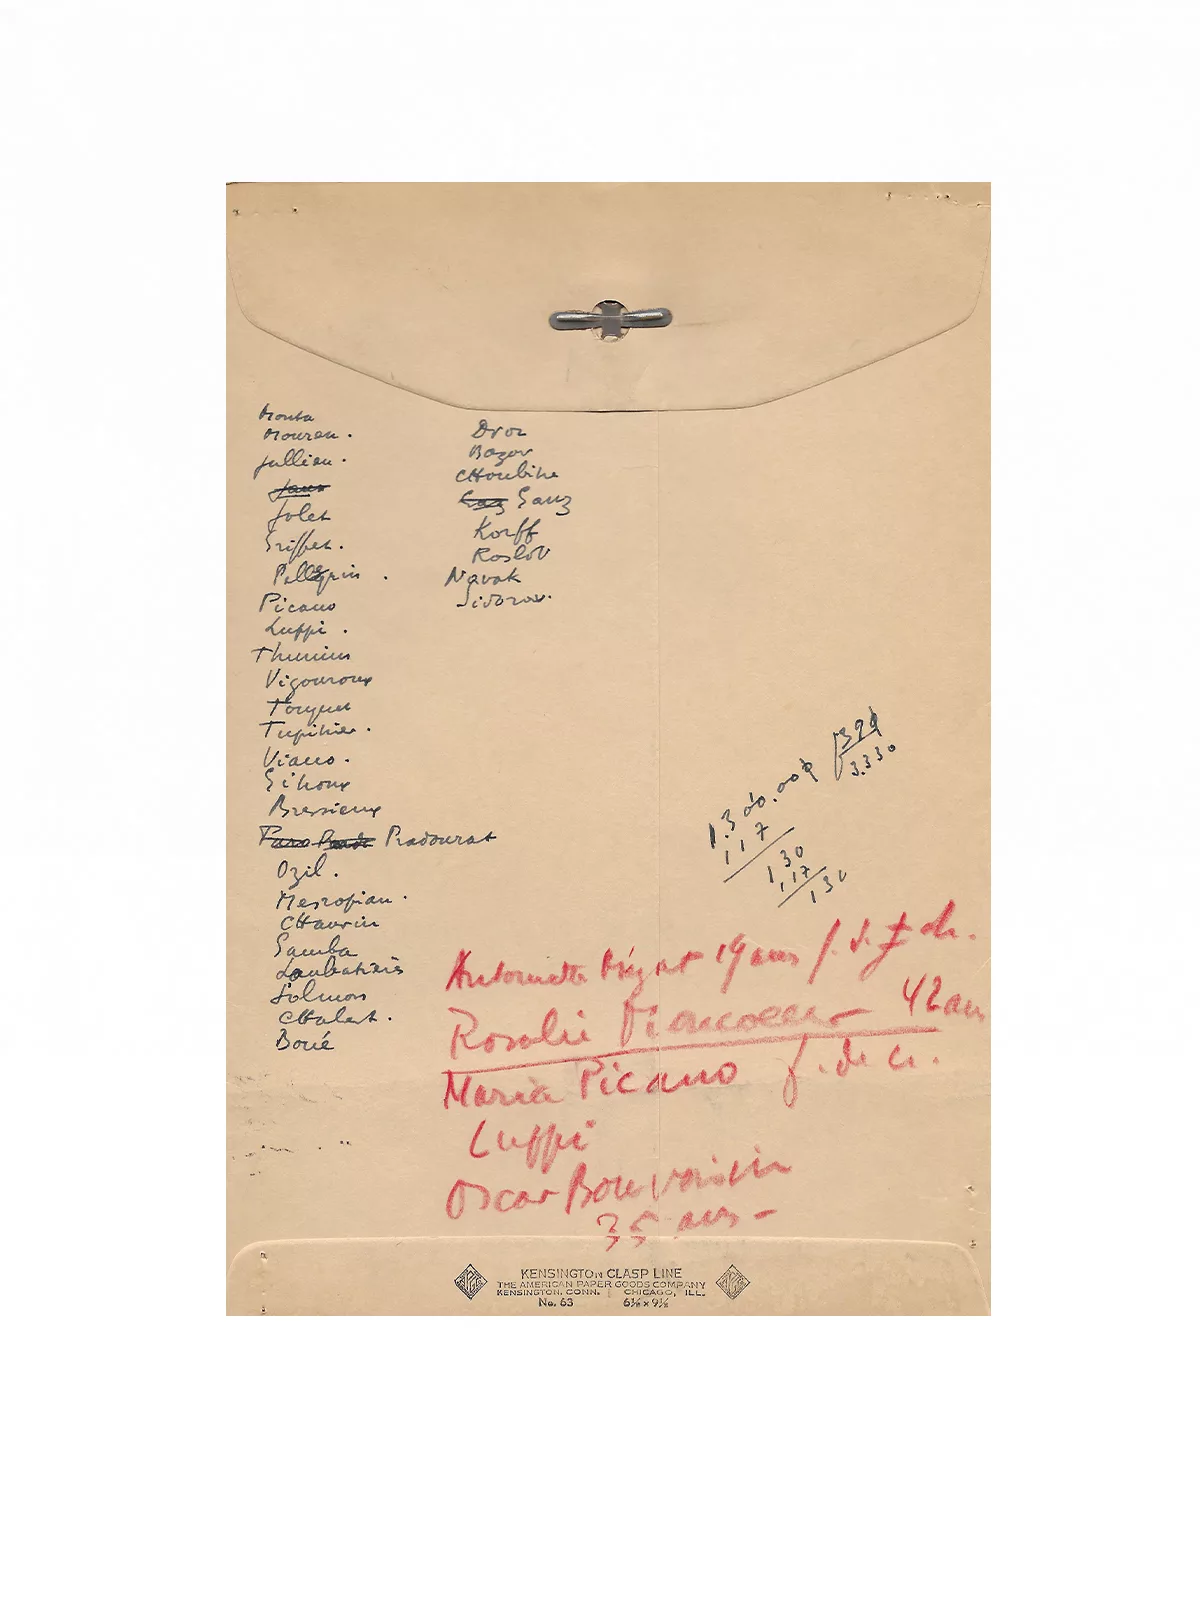 Mouta
Mouren.
Jullien.
Jolet
Griffet.
Pellegrin .
Picano
Luppi .
Thunius
Vigouroux
Toupet
Tupinier.
Viano.
Gihoux
Bressieux
Pradourat
Ozil.
Mesropian.
CHauvin
Samba
Laubatières
Solmon
CHalert.
Boué
Droz
Bazov
CHoubine
Ganz
Korff
Roslov
Navak
Sidorov.
1.300.000 390
117 3.330
130
117
130
Antoinette 19 ans f. d. ch.
Rosalie 42 ans
Maria Picano f. de ch.
Luppi
Oscar Bonvoisin
35 ans -
KENSINGTON CLASP LINE
THE AMERICAN PAPER GOODS COMPANY
KENSINGTON, CONN. CHICAGO, ILL.
No. 63 6½ x 9½